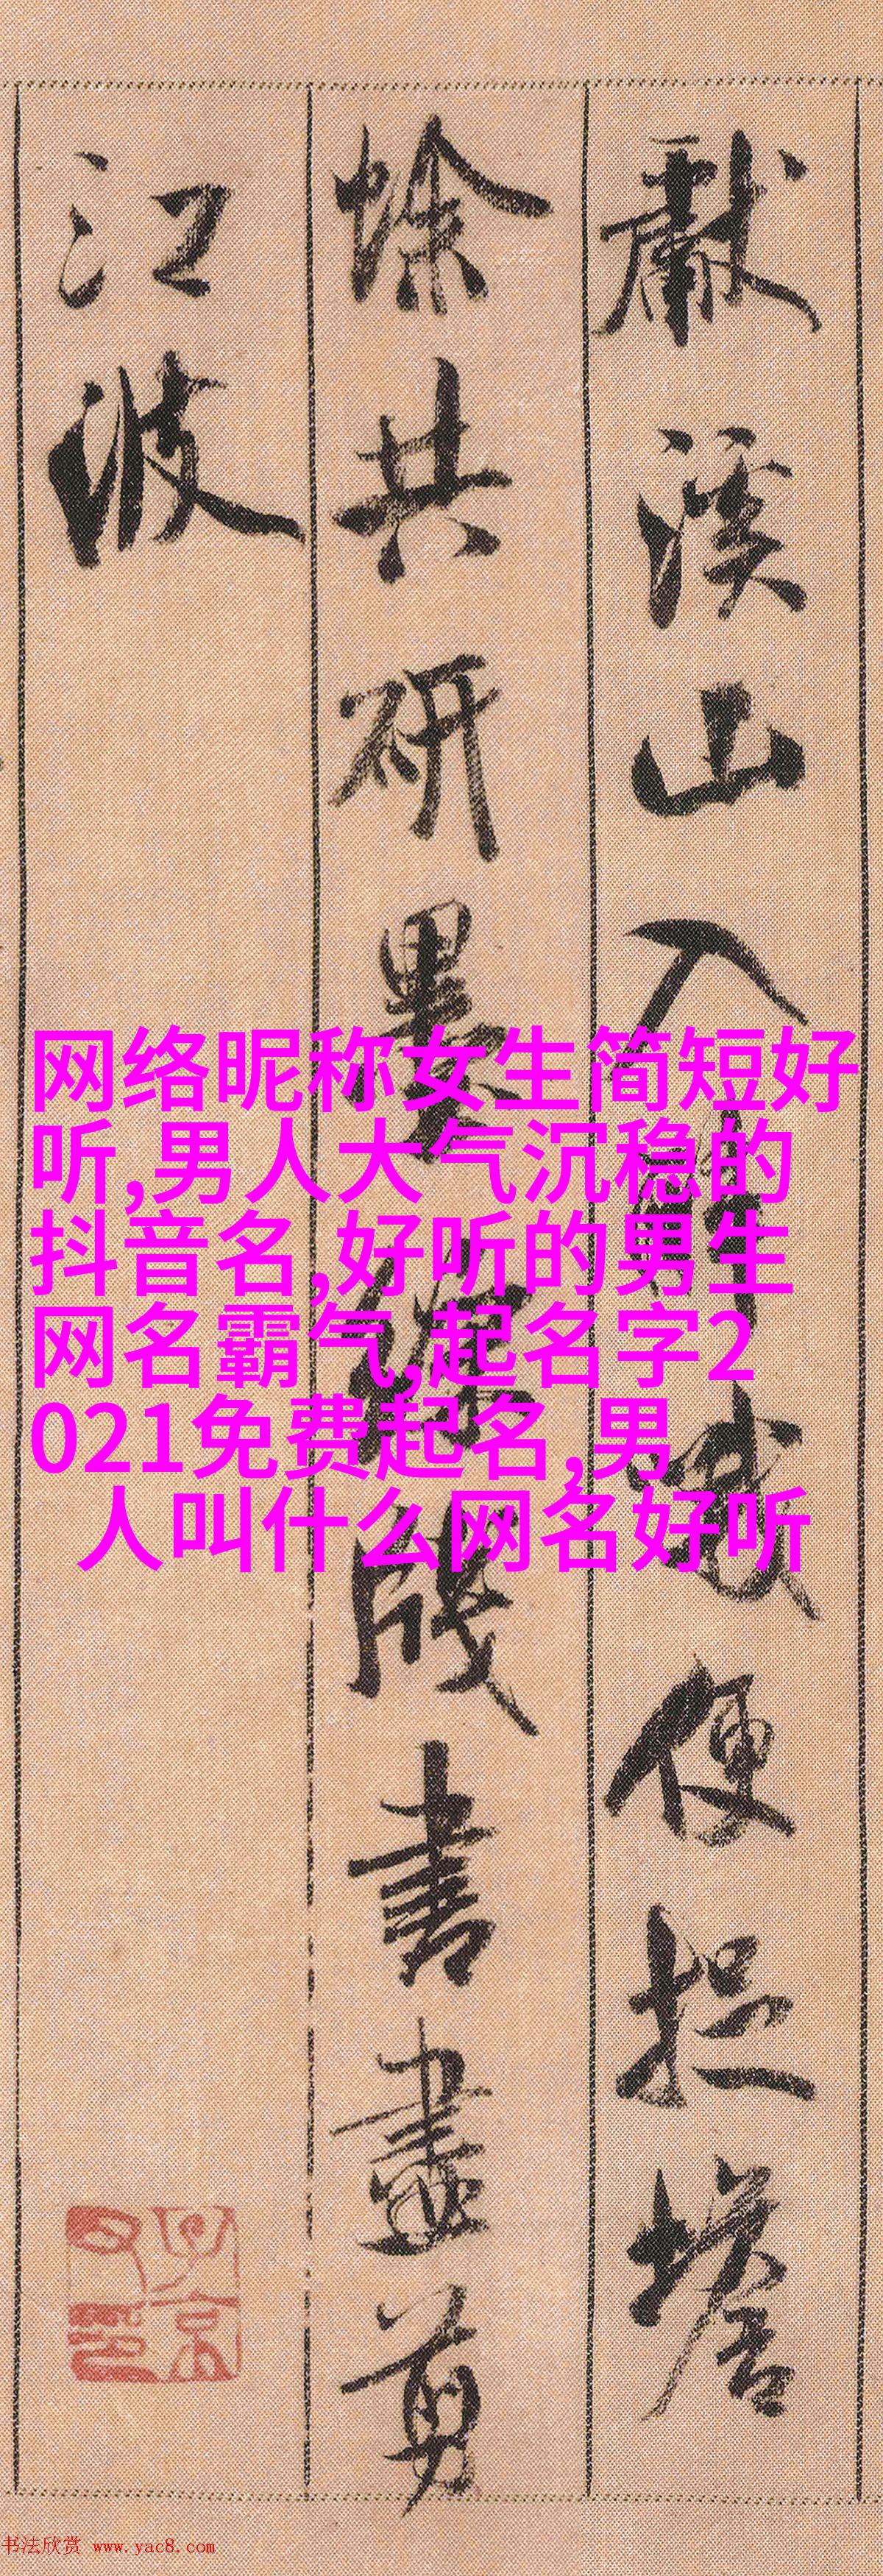 獻溪山入
便捉蟾
蜍共研墨
書畫剪
江波
网络昵称女生简短好
听,男人大气沉稳的
抖音名,好听的男生
网名霸气,起名字2
021免费起名,男
人叫什么网名好听
书法欣赏 www.yac8.com